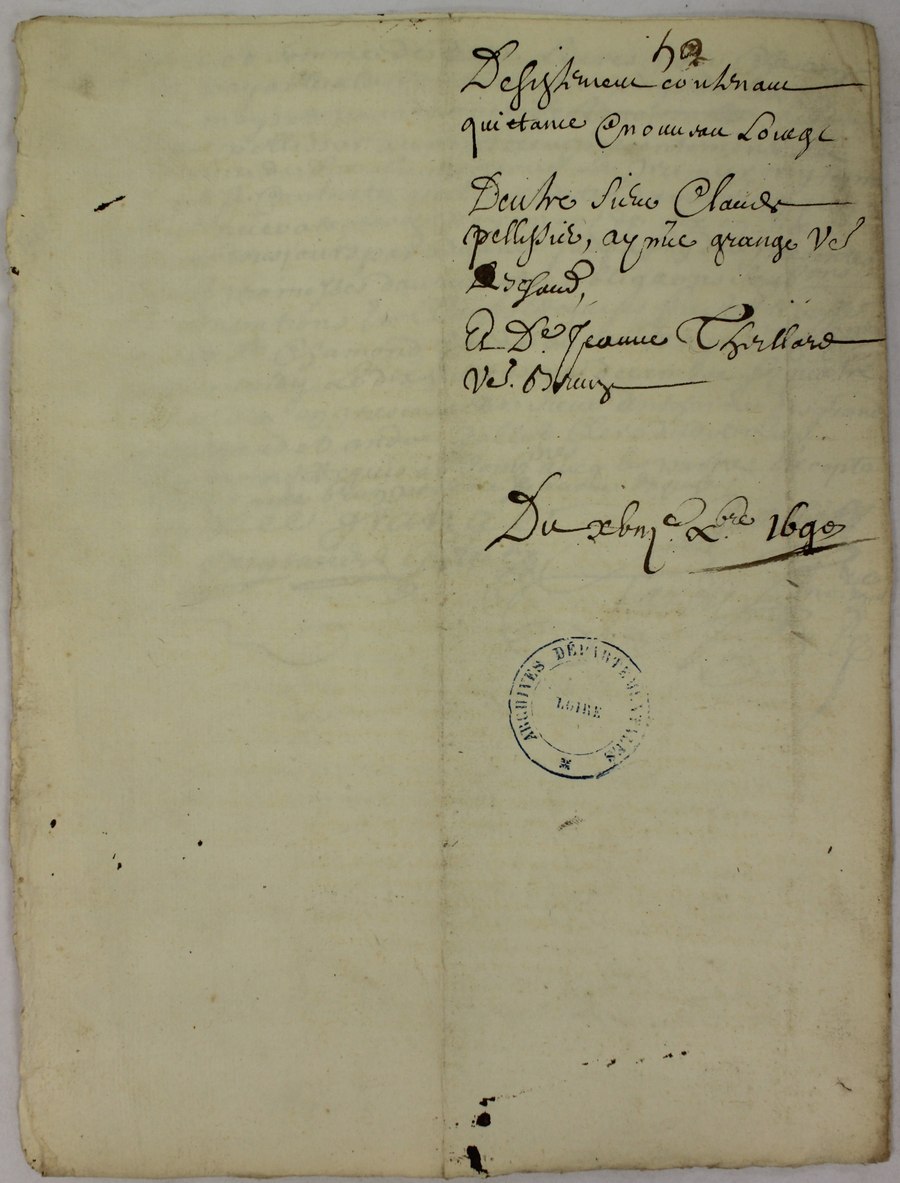 52
Desistement contenant
quictance Et nouveau Louage
D'entre Sieur Claude
pellissier, aymée grange Ve.
Et De. Jeanne Thellard
Ve.
Du xviije. Xbre 1690
ARCHIVES DÉPARTEMENTALES
LOIRE